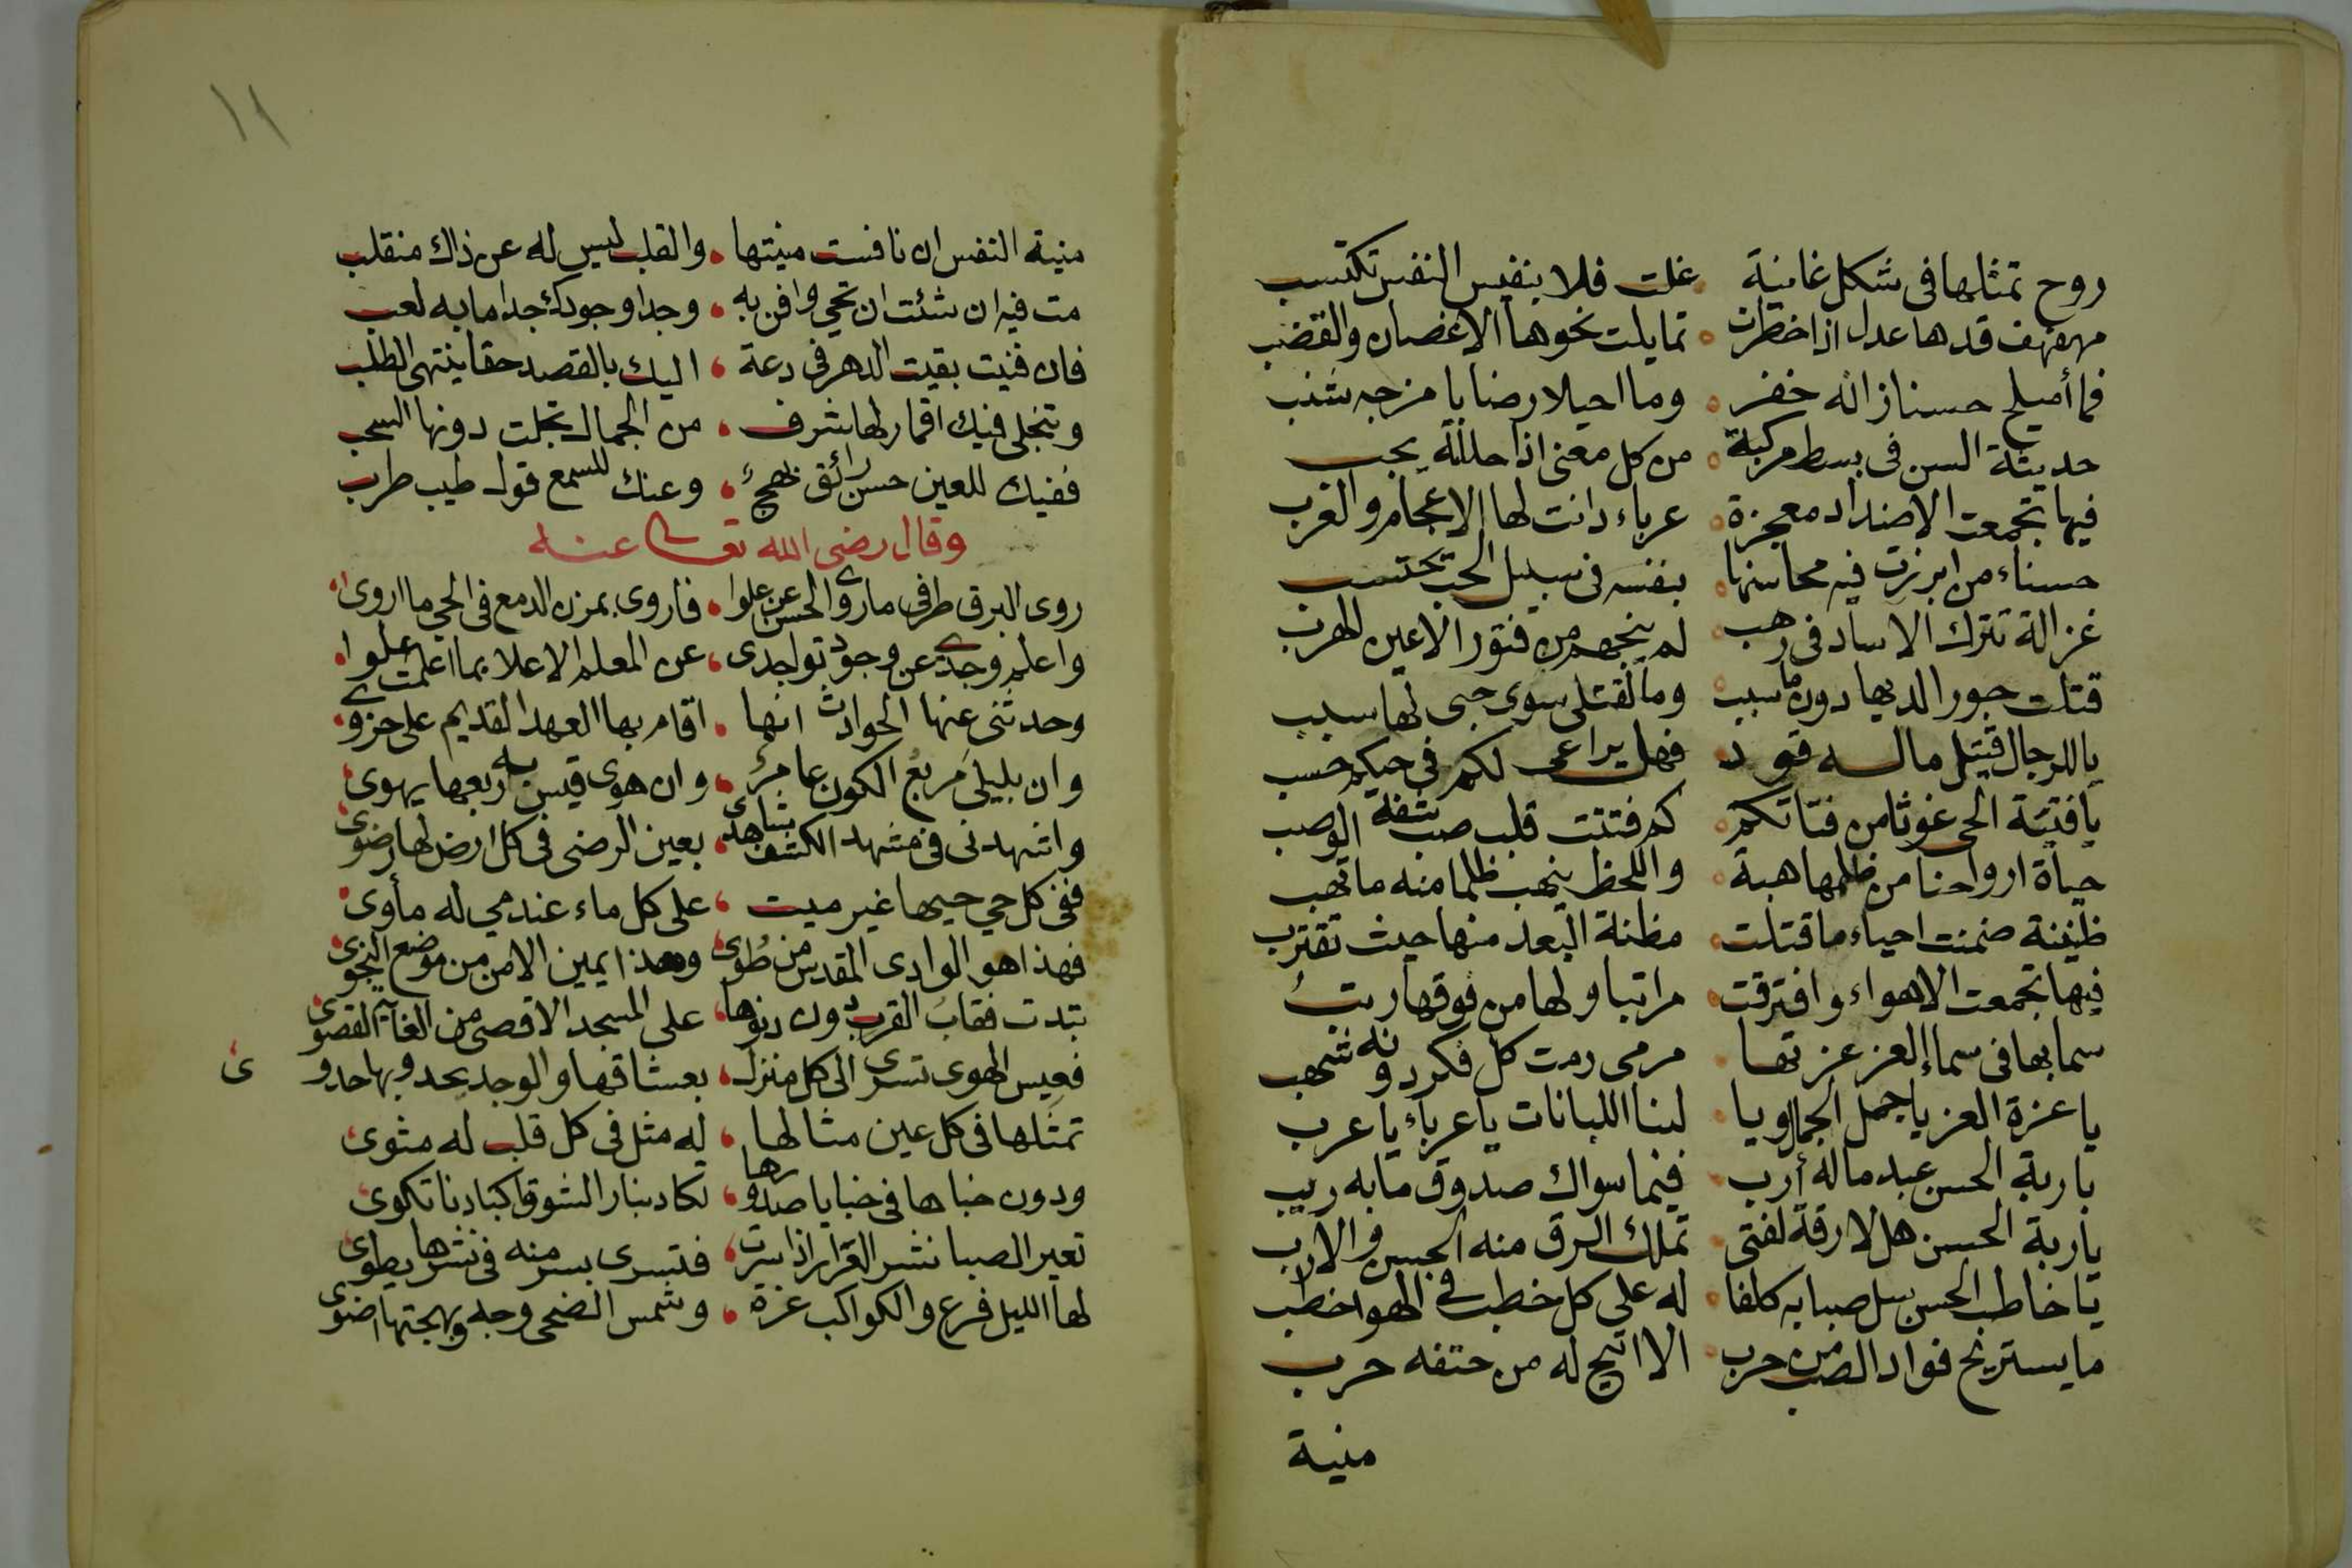 روح تمثلها فى شكل غانية • غلت فلا بنفيس النفس تكتسب
مهفهف قدها عدل اذا خطرت • تمايلت نحوها الاغصان والقضب
فما أميلح حسنا زانه خفر • وما احيلا رضابا مزجه شنب
حديثة السن فى بسط مركبة • من كل معنى اذا حللته عجب
فيها تجمعت الاضداد معجزة • عرباء دانت لها الاعجام والعرب
حسناء من ابرزت فيه محاسنها • بنفسه فى سبيل الحب تحتسب
غزالة تترك الاساد فى رهب • لم ينجهم من فتور الاعين الهرب
قتلت جورا لديها دون ما سبب • وما لقتلى سوى حبى لها سبب
يا للرجال قتيل ماله قود • فهل يراعى لكم فى حيكم حسب
يا فتية الحى غوثا من فتاتكم • كم فتنت قلب صب شفه الوصب
حياة ارواحنا من ظلمها هبة • واللحظ ينهب ظلما منه ما تهب
ظنينة ضمنت احياء ما قتلت • مظنة البعد منها حيث تقترب
فيها تجمعت الاهواء وافترقت • مراتبا ولها من فوقها رتب
سما بها فى سماء العز عزتها • مرمى رمت كل فكر دونه شهب
يا عزة العز يا جمل الجمال ويا • لبنا اللبانات يا عرباء يا عرب
يا ربة الحسن عبد ماله أرب • فيما سواك صدوق ما به ريب
يا ربة الحسن هل لا رقة لفتى • تملك الرق منه الحسن والادب
يا خاطب الحسن سل صبا به كلفا • له على كل خطب فى الهوا خطب
ما يستريح فواد الصب من حرب • الا اتيح له من حتفه حرب
منية
١١
منية النفس ان نافست منيتها • والقلب ليس له عن ذاك منقلب
مت فيه ان شئت ان تحى وافن به • وجد وجودك جدا ما به لعب
فان فنيت بقيت الدهر فى دعة • اليك بالقصد حقا ينتهى الطلب
وتنجلى فيك اقمار لها شرف • من الجمال تجلت دونها السحب
ففيك للعين حسن رائق بهج • وعنك للسمع قول طيب طرب
وقال رضى الله تعالى عنه
روى البرق طرفى ما روى الحسن عن علوا • فاروى بمزن الدمع فى الحى ما اروى
واعلم وجدى عن وجود تواجدى • عن المعلم الاعلا بما اعلمت علوا
وحدثنى عنها الحوادث انها • اقام بها العهد القديم على حزوى
وان بليلى مربع الكون عامر • وان هوى قيس به ربعها يهوى
واشهدنى فى مشهد الكشف شاهد • بعين الرضى فى كل ارض لها رضوى
ففى كل حى حيها غير ميت • على كل ماء عند مى له مأوى
فهذا هو الوادى المقدس من طوى • وهذا يمين الامن من موضع النجوى
تبدت فقاب القرب دون دنوها • على المسجد الاقصى من الغاية القصوى
فعيس الهوى تسرى الى كل منزل • بعشاقها والوجد يحدو بها حدو ى
تمثلها فى كل عين مثالها • له مثل فى كل قلب له مثوى
ودون خباها فى خبايا صدورها • تكاد بنار الشوق اكبادنا تكوى
تعير الصبا نشر العرار اذا سرت • فتسرى بسر منه فى نشرها يطوى
لها الليل فرع والكواكب غرة • وشمس الضحى وجه وبهجتها اضوى